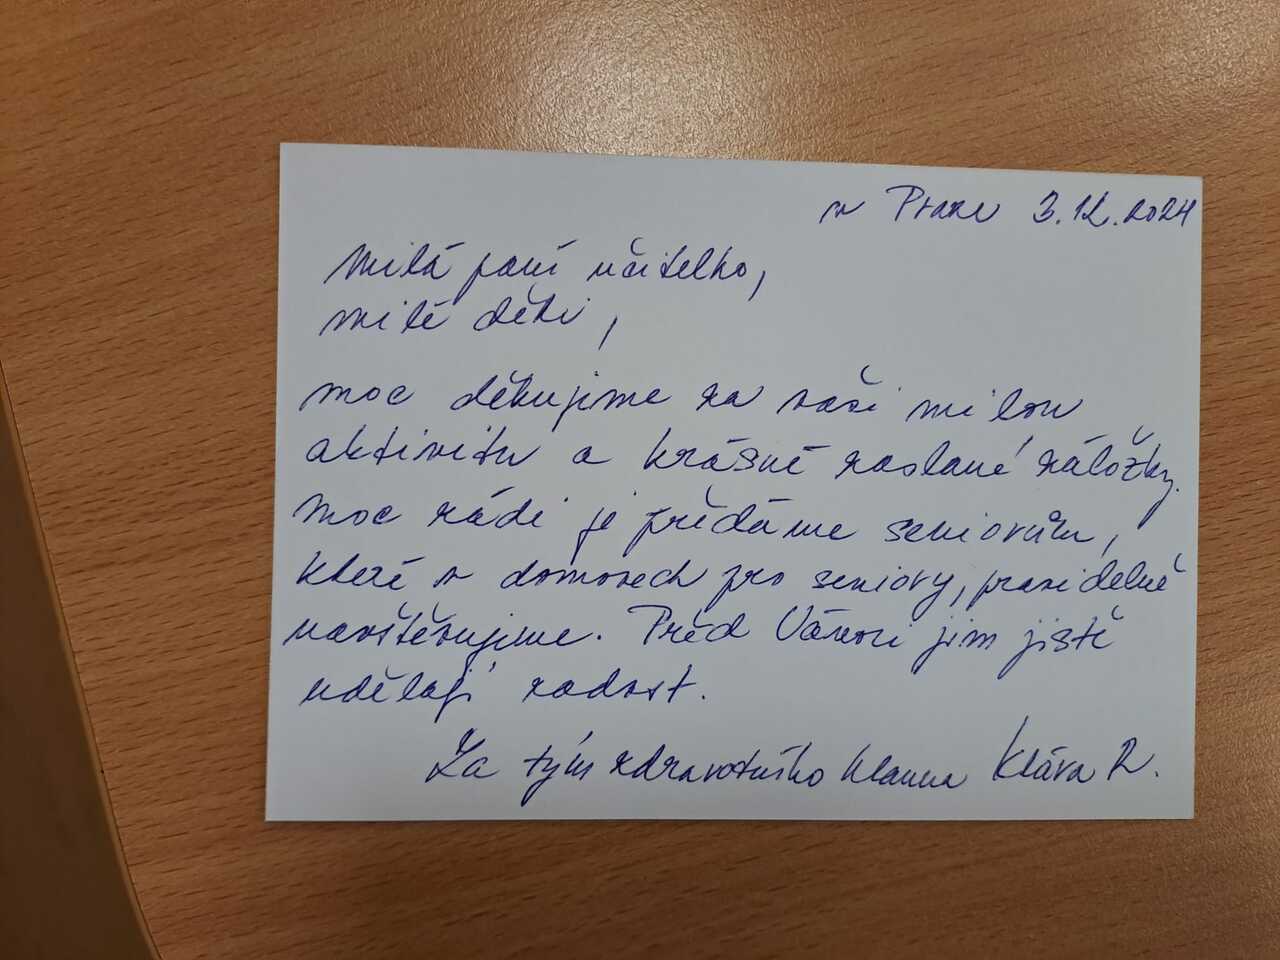 v Praze 3.12.2024
Milá paní učitelko,
milé děti,
moc děkujeme za vaši milou
aktivitu a krásné zaslané záložky.
Moc rádi je předáme seniorům,
které v domovech pro seniory, pravidelně
navštěvujeme. Před Vánoci jim jistě
udělají radost.
Za tým zdravotního klauna Klára R.